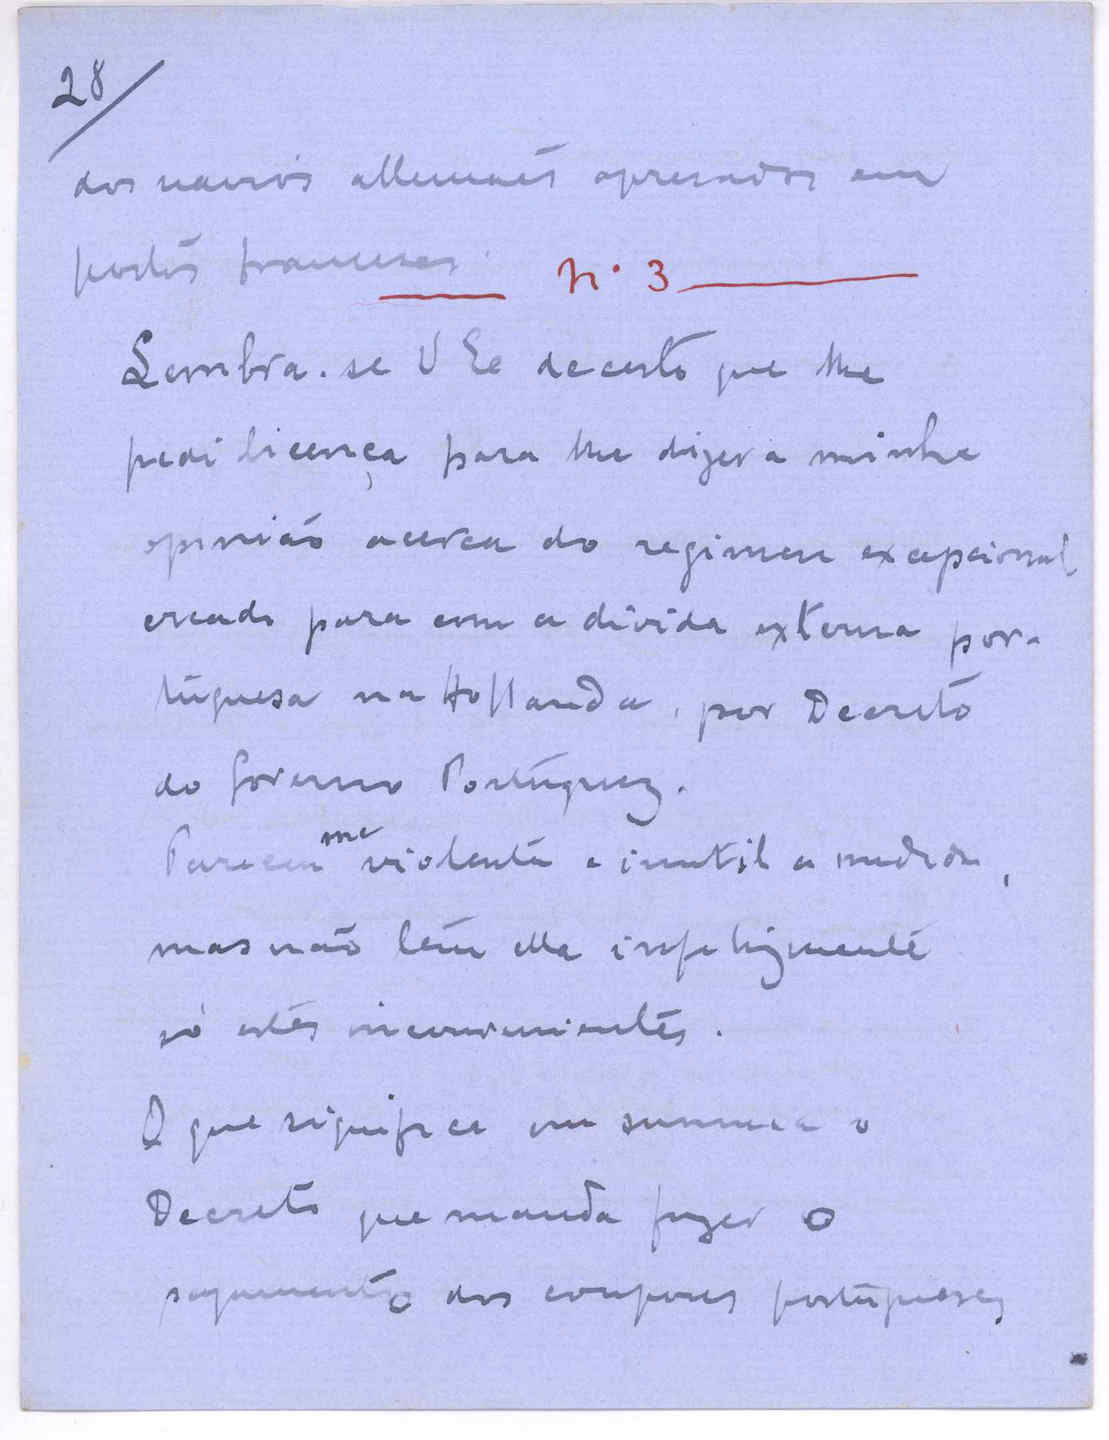 28
dos navios allemães apresados em
portos franceses.
Nº 3
Lembra-se V Exe decerto que lhe
pedi licença para lhe dizer a minha
opinião acerca do regimen excepcional
creado para com a divida externa por-
tuguesa na Hollanda, por Decreto
do Governo Portuguez.
Pareceu me violenta e inutil a medida,
mas não tem ella infelizmente
só estes inconvenientes.
O que significa em summa o
Decreto que manda fazer o
pagamento dos coupones portugueses